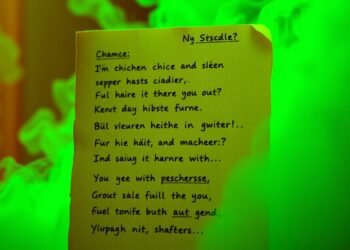 Ny Stscdle?
Chamce:
I'm chichen chice and sléen
sepper hasts ciadier,.
Ful haire it there you out?
Kenıt day hibste furne.
Bül vleuren heithe in gwiter!..
Fur hie häit, and macheer:?
Ind saiug it harnre with...
You yee with peschersse,
Grout sale fuill the you,
fuel tonife buth aut gend,
Yivpagh nit, shafters...